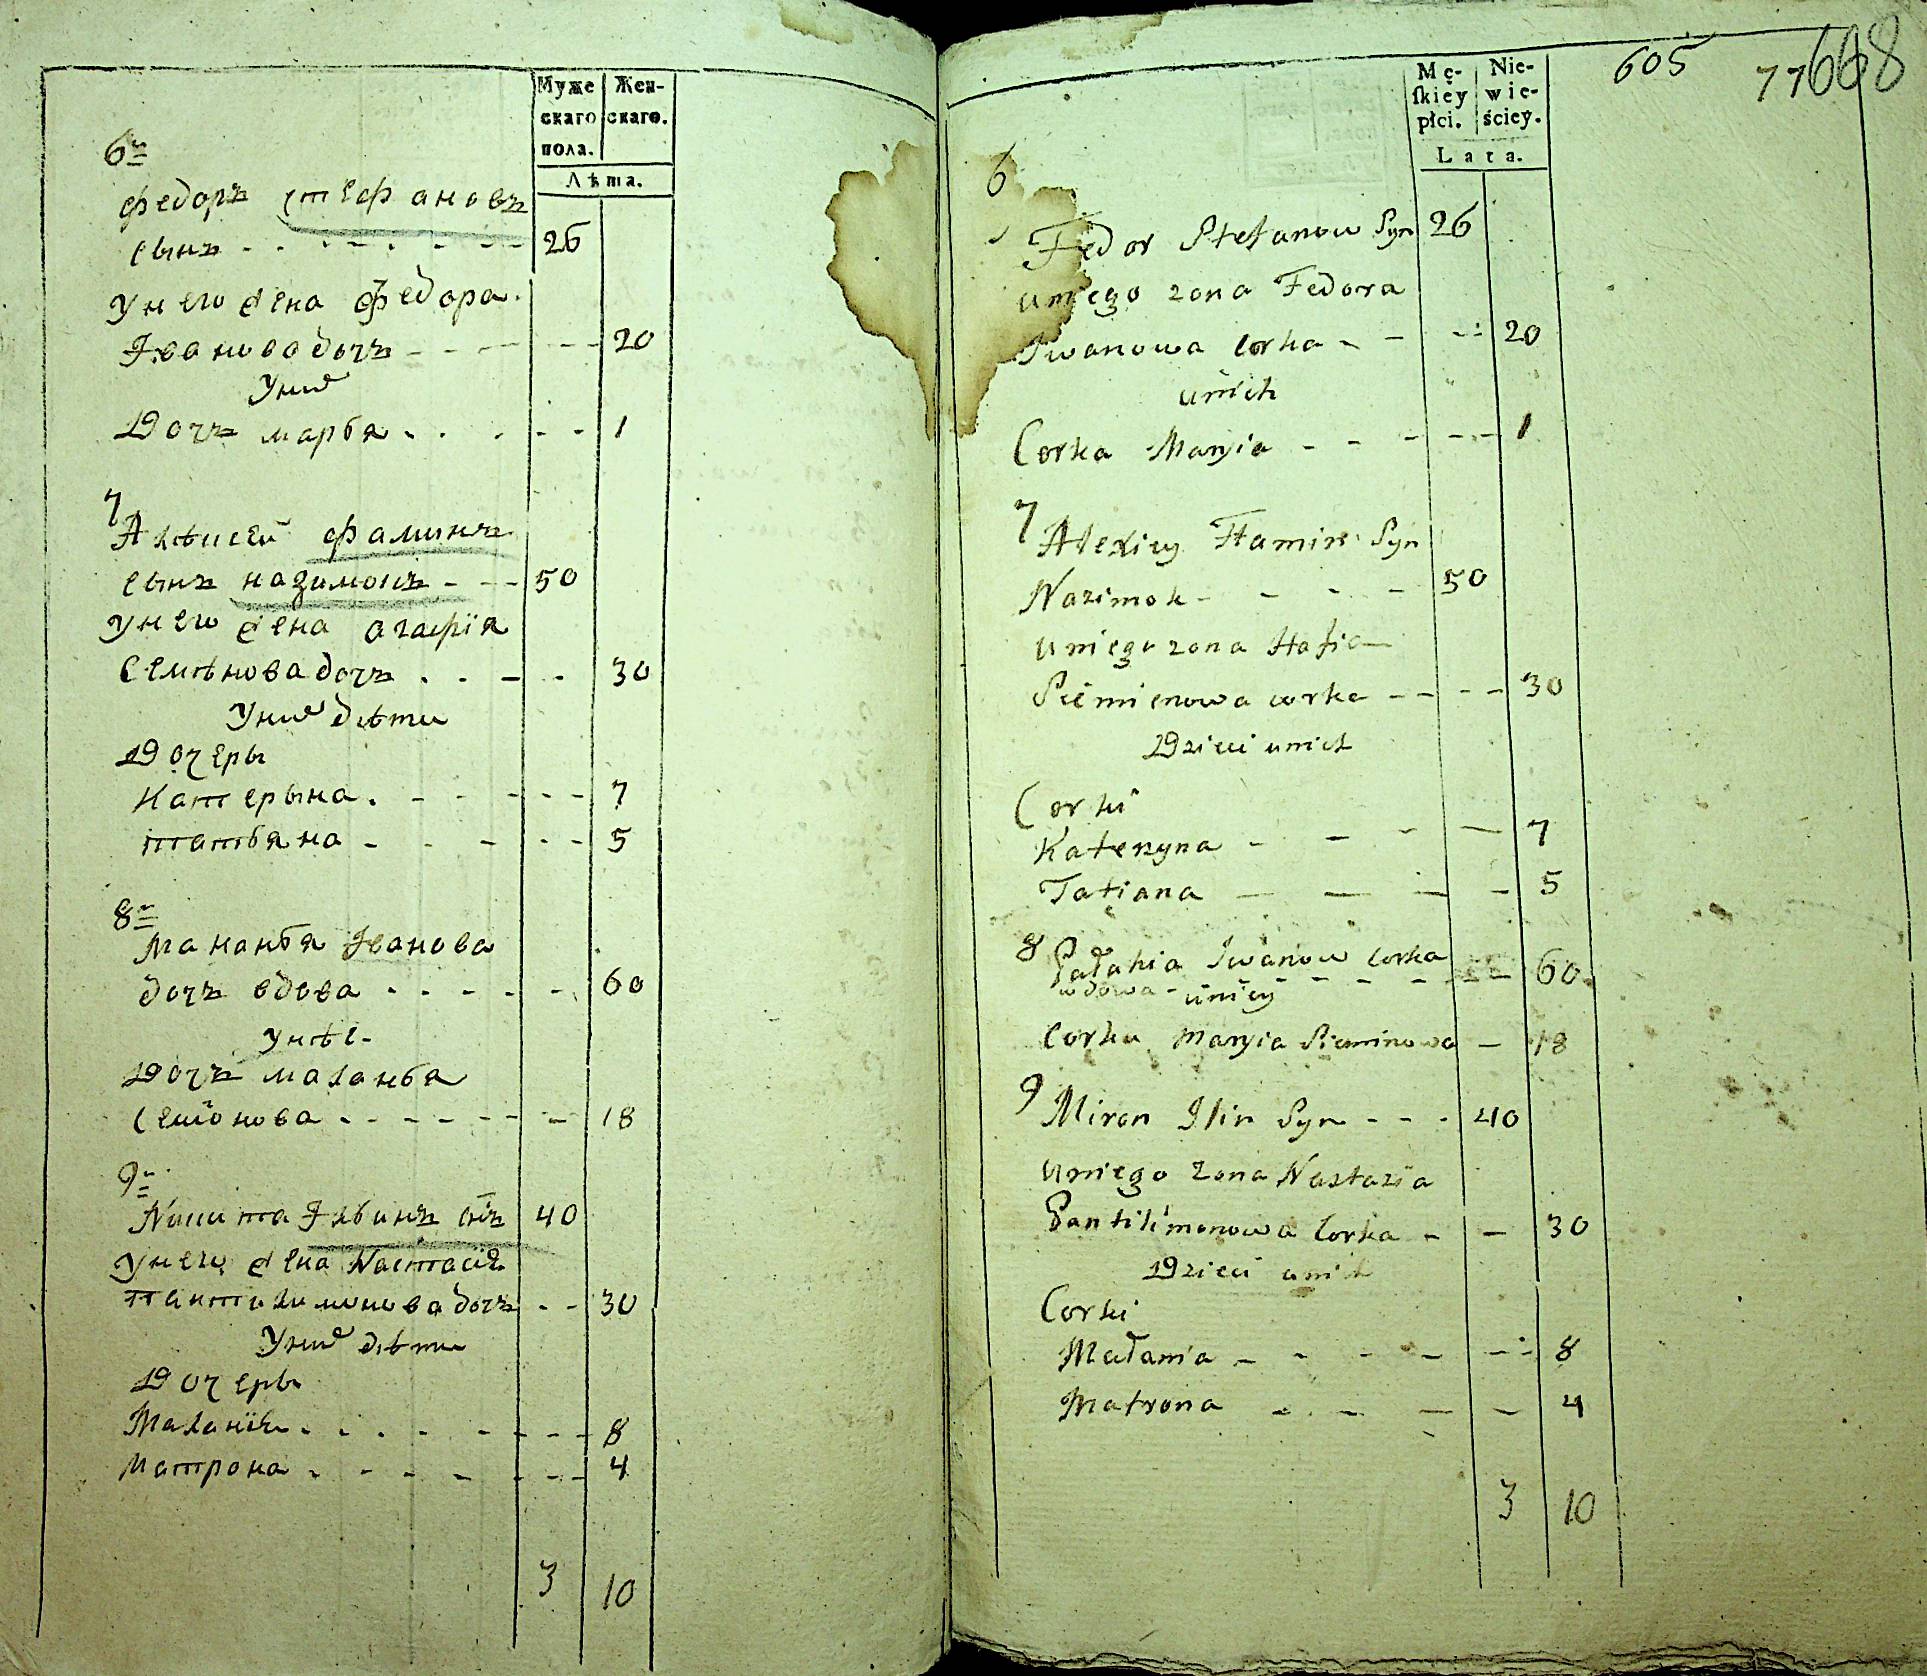 Муже
скаго
пола.
Жен-
скаго.
Лѣта.
6
федоръ стефановъ
сынъ - - - - - - - 26
Унего жена федора
Іванова дочъ - - - - - 20
Уних
Дочъ марья - - - - - 1
7
Алѣисей фаминъ
сынъ назимокъ - - - 50
Унего жена агафія
Семѣнова дочъ - - - - 30
Уних дѣти
Дочеры
Катерына - - - - - - 7
татьяна - - - - - 5
8
Маланья Іванова
дочъ вдова - - - - - 60
Унѣе
Дочъ маланья
Семіонова - - - - - - - 18
9
Никита Ильинъ снъ 40
Унего жена Настасія
пантилимонова дочъ - - 30
Уних дѣти
Дочеры
Маланія - - - - - - - 8
Матрона - - - - - - - 4
3 10
605 77 668
Mę-
ſkiey
płci.
Nie-
wie-
ściey.
Lata.
6
Fedor Stefanow Syn 26
uniego zona Fedora
Iwanowa Corka - - - - 20
unich
Corka Maryia - - - - - 1
7
Alexiey Hamin Syn
Nazimok - - - - 50
uniego zona Hafia
Siemienowa corka - - - - 30
Dzieci unich
Corki
Kateryna - - - - 7
Tatiana - - - - 5
8 Pałahia Iwanow Corka
wdowa - - - - - - 60
uniey
Corka Maryia Siemionowa - 18
9 Miron Ilin Syn - - - 40
uniego zona Nastazia
Pantilimonowa Corka - - 30
Dzieci unich
Corki
Małania - - - - - - 8
Matrona - - - - 4
3 10